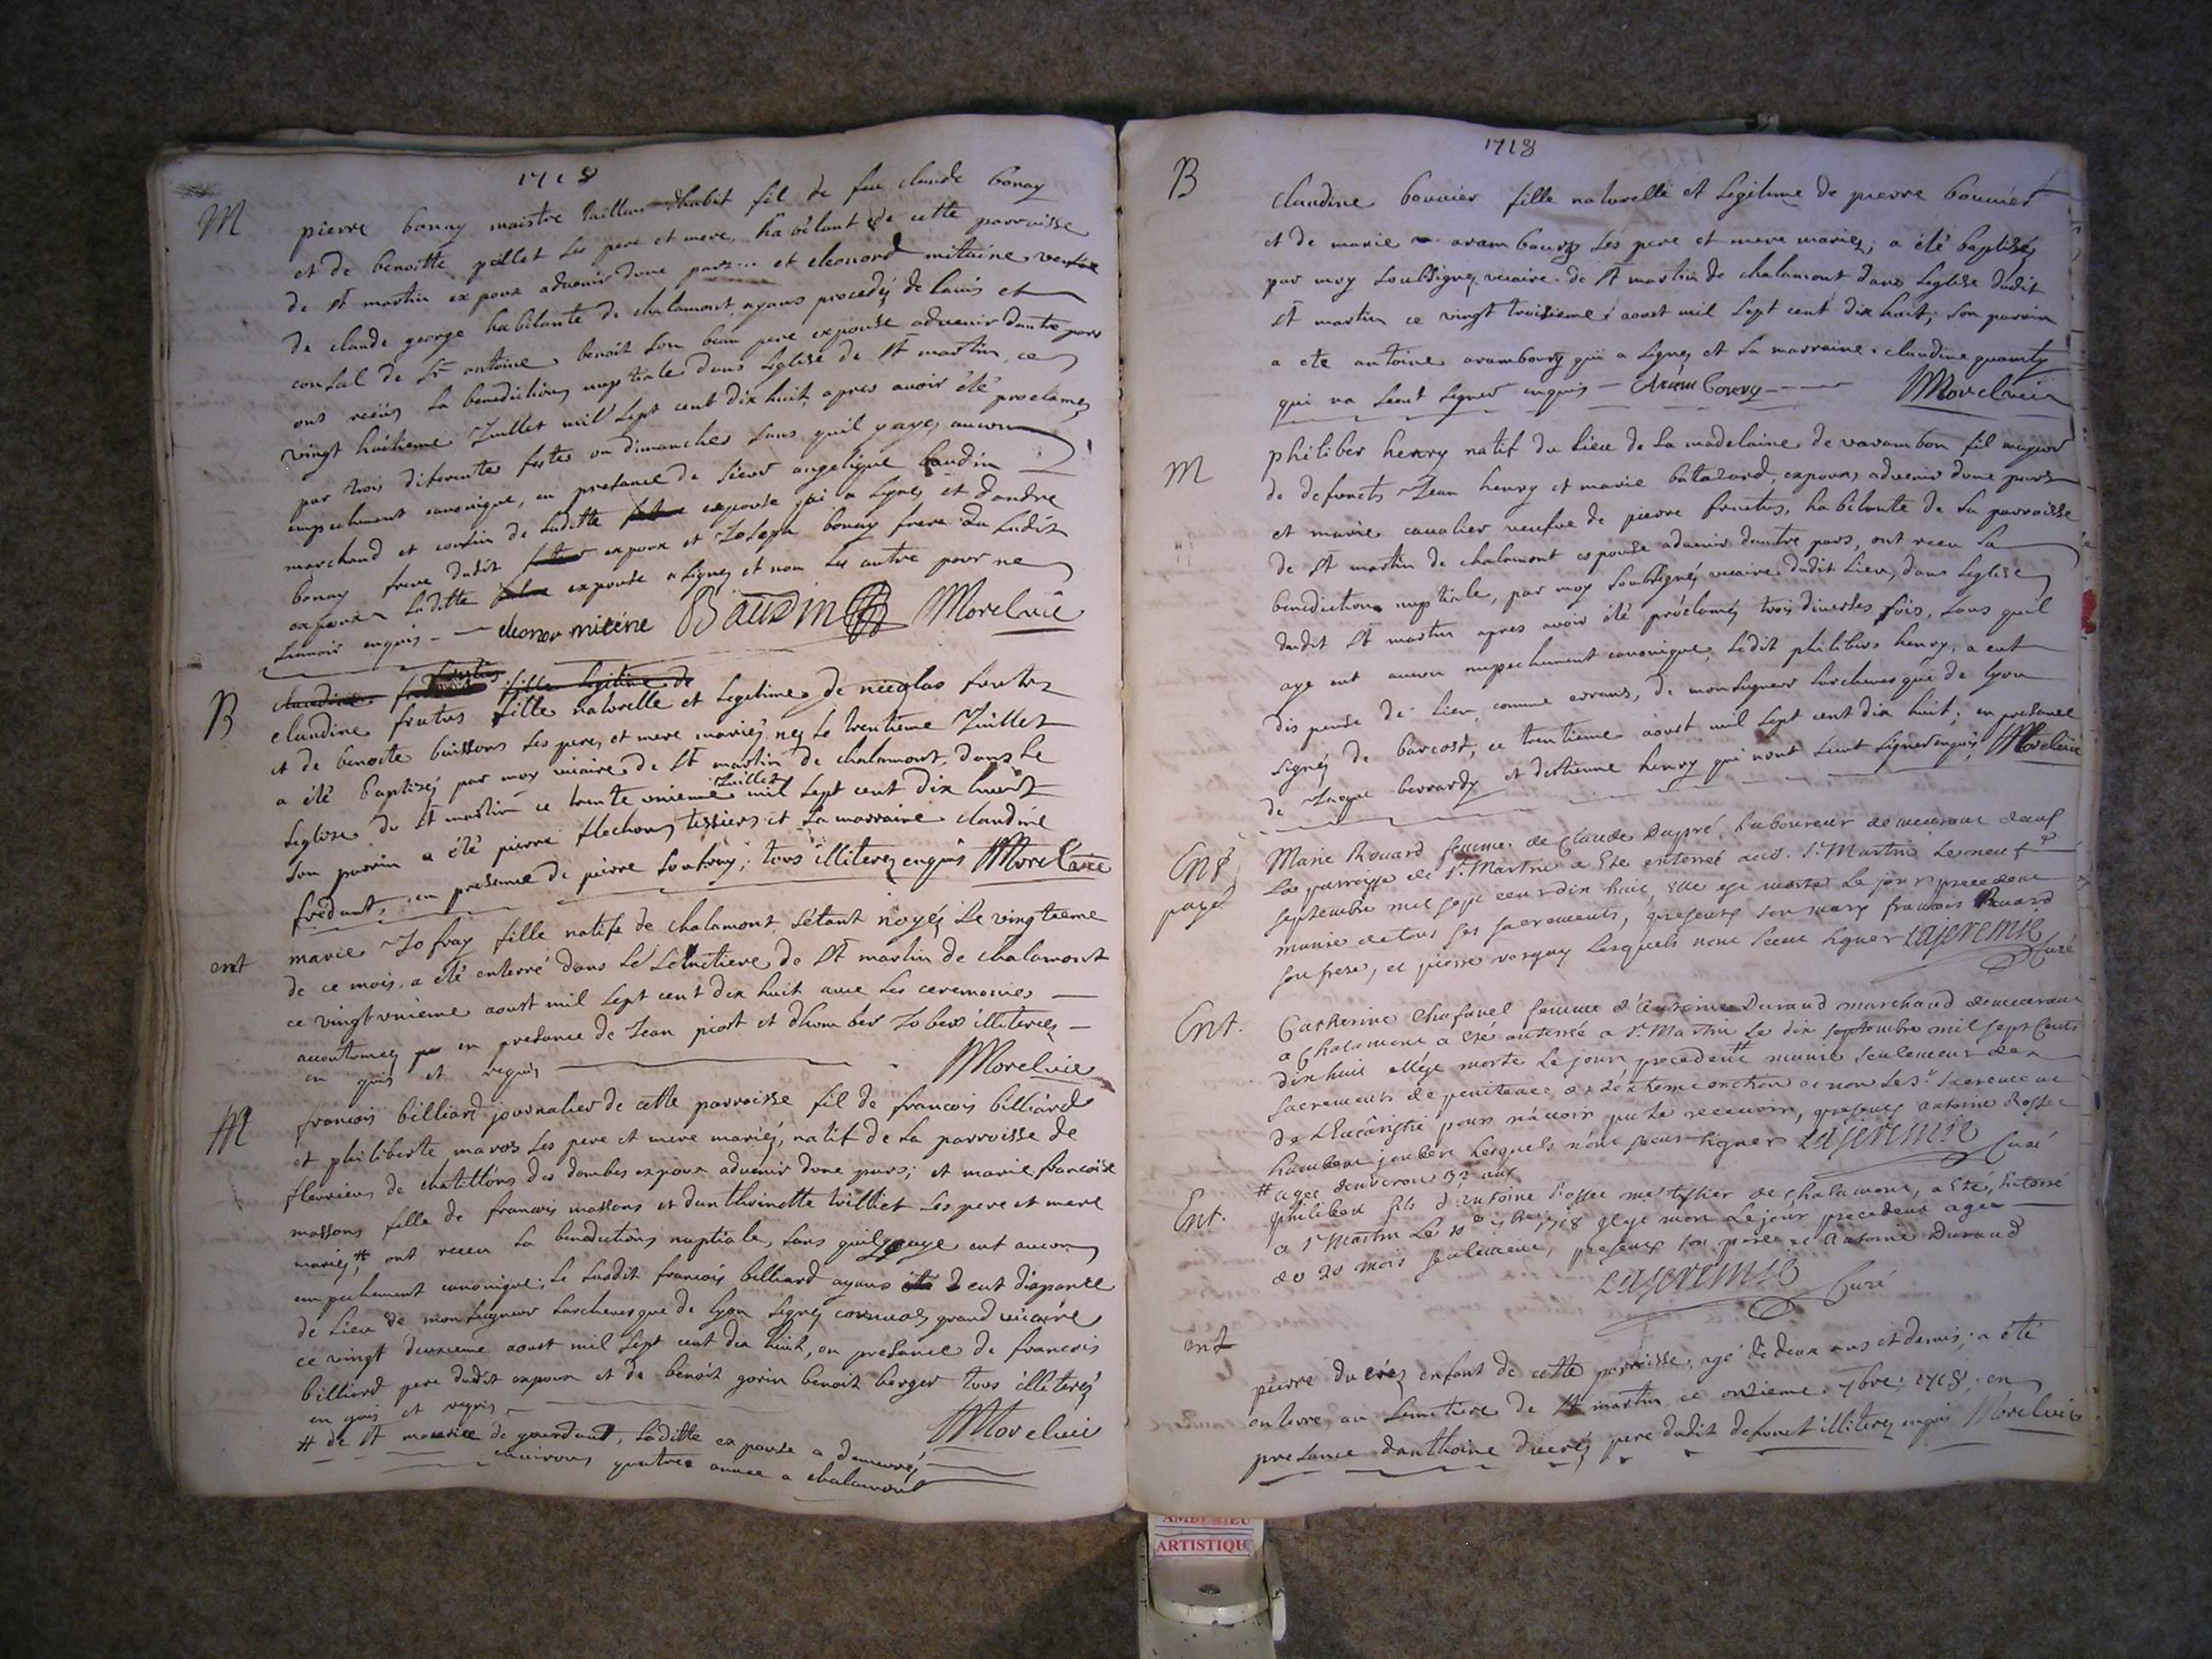 1718
M
pierre bonay maistre tailleur dhabit fil de feu claude bonay
et de benoitte pillet ses pere et mere, habitant de cette parroisse
de St martin expoux advenir dune part... et eleonord mitaine veufve
de claude george habitante de chalamont, ayans procedéz de lavis et
consal de Sr antoine benoit son beau pere expouse advenir dautre part
ont reciüs la benediction nuptiale dans leglise de St martin, ce
vingt huitieme Juillet mil sept cent dix huit, apres avoir été proclamez
par trois diferente feste ou dimanches sans quil yaye aucun
empechement canonique, en presance de sieur angelique baudin
marchand et cousin de laditte expouse qui a signez et dandre
bonay frere dudit expoux et Joseph bonay frere du ludit
expoux laditte expouse a signez et non les autre pour ne
enquis - - eleonor miténe Baudin Morel vic
B
claudine fille legitime de
claudine frutus fille naturelle et legetime de nicolas frutus
et de benoite buissons ses pere et mere mariéz, néz le trentieme Juillet
a été baptiséz par moy vicaire de St martin de chalamont, dans le
leglise du St martin ce trente unieme Juillet mil sept cent dix huit
son parrin a été pierre flechon tessiers et la marraine claudine
fredant, en presence de pierre ; tous illiterez enquis Morel vic
ent
marie Jofray fille natife de chalamont, sétant noyéz le vingtieme
de ce mois, a été enterré dans le semetiere de St martin de chalamont
ce vingt unieme aoust mil sept cent dix huit avec les ceremonies
accoutumez en presance de Jean piost et dhomber Jober illiterez
en quis et requis Morel vic
M
francois billiard journalier de cette parroisse fil de francois billiard
et philiberte maros ses pere et mere mariéz, natif de la parroisse de
flerrieux de chatillons des dombes expoux advenir dune pars; et marie francoise
massons fille de francois massons et danthoinette villiet ses pere et mere
mariéz,# ont receu la benediction nuptiale, sans quil yaye eut aucun
empechement canonique; le susdit francois billiard ayans eut dispance
de lieu de monseigneur larchevesque de lyon signez grand vicaire
ce vingt deuxieme aoust mil sept cent dix huit, en presance de francois
billiard pere dudit expoux et de benoit gorin benoit berger tous illiteréz
en quis et requis Morel vic
# de St maurice de gourdant, laditte expouse a demeurez
environs quatres annee a chalamont
1718
B
claudine bouvier fille naturelle et legitime de pierre bouvier
et de marie arambourg ses pere et mere mariez; a été baptiséz
par moy soussignez vicaire de St martin de chalamont dans leglise dudit
St martin ce vingt troisieme aoust mil sept cent dix huit; son parrin
a ete antoine arambourg qui a signez et sa marraine claudine quanty
qui na seut signer enquis - Arambourg - Morel vic
M
philiber henry natif du lieu de la madelaine de varambon fil majeur
de defuncts Jean henry et marie balazard, expoux advenir dune pars
et marie cavalier veufve de pierre frutus, habitante de la parroisse
de St martin de chalamont espouse advenir dautre pars, ont receu la
benediction nuptiale, par moy soubsignéz vicaire dudit lieu, dans leglise
dudit St martin apres avoir été proclaméz trois diverses fois, sans quil
aye eut aucun empechement canonique, ledit philibers henry, a eut
dispense de lieu comme errans, de monseigneur larchevesque de lyon
signéz de barcost, ce trentieme aoust mil sept cent dix huit; en presance
de Jaque berrardy et destienne henry qui nont seut signer enquis, Morel vic
Ent
payé
Marie Rouard femme de Claude Duppré laboureur demeurant dans
la parroisse de St. Martin a Eté enterrée aud. St. Martin le neuf
septembre mil sept cent dix huit, elle est morte le jour precedent
munie de tous ses sacrements, presents son mary francois Ruard
son frere, et pierre vasquy lesquels nont sceu signer Lajeremie
Curé
Ent.
Catherine Chafanel femme d'Antoine Durand marchand demeurant
a Chalamont a Eté enterrée a St. Martin le dix septembre mil sept cents
dix huit est morte le jour precedent# munie seulement des
sacrements de penitence et dextreme onction et non le St sacrement
de L'Eucaristie pour n'avoir pu le recevoir, presents antoine Rosset
humbert joubert lesquels n'ont sceus signer Lajeremie Curé
# agée denviron 32 ans
Ent.
Philibert fils d'antoine Rosset me tissier de chalamont, a Eté, Enterré
a St Martin le 10e 7bre 1718 il est mort le jour precedent agée
de 20 mois seulement, presents son pere et Antoine Durand
Lajeremie Curé
ent
pierre ducréz enfant de cette parroisse, agé de deux ans et demis; a été
enterre au semetiere de St martin ce onzieme 7bre 1718, en
presance danthoine ducréz pere dudit defunct illiterez enquis Morel vic
AMBERIEU
ARTISTIQU